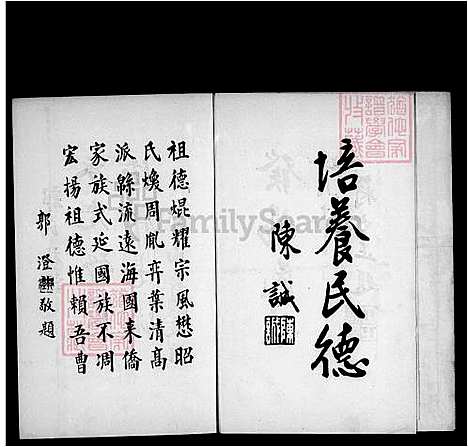 培養民德
陳誠
祖德焜耀宗風懋昭
氏煥周胤弈葉清高
派緜流遠海國來僑
家族式延國族不凋
宏揚祖德惟賴吾曹
郭澄敬題
FamilySearch